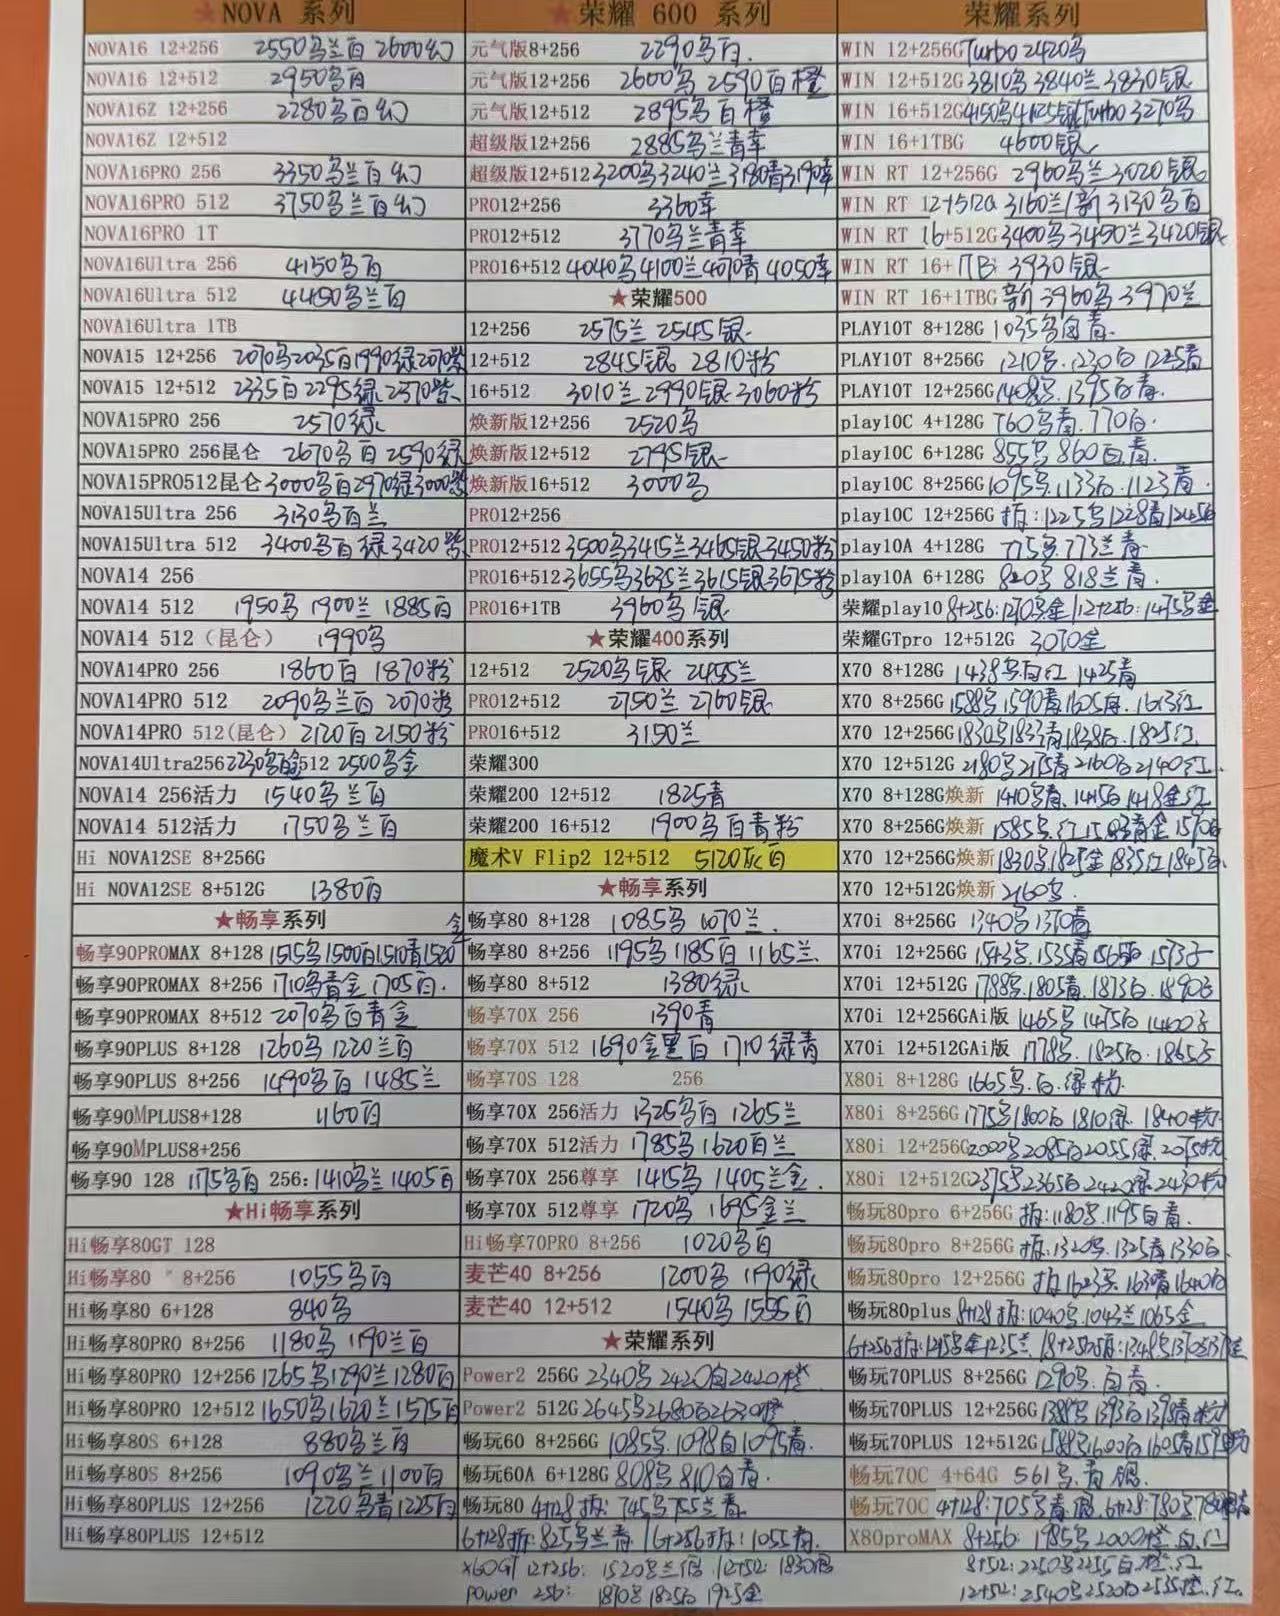 ★NOVA 系列
NOVA16 12+256 2550乌兰白 2600幻
NOVA16 12+512 2950乌白
NOVA16Z 12+256 2280乌白幻
NOVA16Z 12+512
NOVA16PRO 256 3350乌兰白幻
NOVA16PRO 512 3750乌兰白幻
NOVA16PRO 1T
NOVA16Ultra 256 4150乌白
NOVA16Ultra 512 4450乌兰白
NOVA16Ultra 1TB
NOVA15 12+256 2070乌2035白1990绿2070紫
NOVA15 12+512 2335白2295绿2370紫
NOVA15PRO 256 2570绿
NOVA15PRO 256昆仑 2670乌白2590绿
NOVA15PRO512昆仑 3000乌白2970绿3000紫
NOVA15Ultra 256 3130乌白兰
NOVA15Ultra 512 3400乌白绿3420紫
NOVA14 256
NOVA14 512 1950乌 1900兰 1885白
NOVA14 512（昆仑） 1990乌
NOVA14PRO 256 1860白 1870粉
NOVA14PRO 512 2090乌兰白 2070粉
NOVA14PRO 512(昆仑) 2120白2150粉
NOVA14Ultra256 2230乌白金 512 2500乌金
NOVA14 256活力 1540乌兰白
NOVA14 512活力 1750乌兰白
Hi NOVA12SE 8+256G
Hi NOVA12SE 8+512G 1380白
★畅享系列
畅享90PROMAX 8+128 1515乌1500白1510青1520金
畅享90PROMAX 8+256 1710乌青金 1705白
畅享90PROMAX 8+512 2070乌白青金
畅享90PLUS 8+128 1260乌1220兰白
畅享90PLUS 8+256 1490乌白1485兰
畅享90MPLUS8+128 1160白
畅享90MPLUS8+256
畅享90 128 1175乌白 256:1410乌兰1405白
★Hi畅享系列
Hi畅享80GT 128
Hi畅享80 8+256 1055乌白
Hi畅享80 6+128 840乌
Hi畅享80PRO 8+256 1180乌 1190兰白
Hi畅享80PRO 12+256 1265乌1290兰1280白
Hi畅享80PRO 12+512 1650乌1620兰1575白
Hi畅享80S 6+128 880乌兰白
Hi畅享80S 8+256 1090乌兰1100白
Hi畅享80PLUS 12+256 1220乌青1225白
Hi畅享80PLUS 12+512
★荣耀 600 系列
元气版8+256 2290乌白
元气版12+256 2600乌 2590白橙
元气版12+512 2895乌白橙
超级版12+256 2885乌兰青幸
超级版12+512 3200乌3240兰3180青3190幸
PRO12+256 3360幸
PRO12+512 3770乌兰青幸
PRO16+512 4040乌4100兰4070青4050幸
★荣耀500
12+256 2575兰 2545银
12+512 2845银 2810粉
16+512 3010兰2990银3060粉
焕新版12+256 2520乌
焕新版12+512 2795银
焕新版16+512 3000乌
PRO12+256
PRO12+512 3500乌3415兰3465银3450粉
PRO16+512 3655乌3635兰3615银3675粉
PRO16+1TB 3960乌银
★荣耀400系列
12+512 2520乌银 2455兰
PRO12+512 2750兰 2760银
PRO16+512 3150兰
荣耀300
荣耀200 12+512 1825青
荣耀200 16+512 1900乌白青粉
魔术V Flip2 12+512 5120灰白
★畅享系列
畅享80 8+128 1085乌 1070兰
畅享80 8+256 1195乌1185白1165兰
畅享80 8+512 1380绿
畅享70X 256 1390青
畅享70X 512 1690金黑白 1710绿青
畅享70S 128 256
畅享70X 256活力 1325乌白 1265兰
畅享70X 512活力 1785乌1620白兰
畅享70X 256尊享 1415乌 1405兰金
畅享70X 512尊享 1720乌 1695金兰
Hi畅享70PRO 8+256 1020乌白
麦芒40 8+256 1200乌 1190绿
麦芒40 12+512 1540乌1555白
★荣耀系列
Power2 256G 2340乌2420白2420橙
Power2 512G 2645乌2680白2630橙
畅玩60 8+256G 1085乌.1098白1095青
畅玩60A 6+128G 808乌 810白青
畅玩80 4+128拆:745乌755兰青
6+128拆:825乌兰青 16+256拆:1055青
X60GT 12+256: 1520乌兰白 12+512:1830白
power 256: 1810乌1825白1925金
荣耀系列
WIN 12+256G Turbo 2420乌
WIN 12+512G 3810乌3840兰3830银
WIN 16+512G 4150乌4125银Turbo 3270乌
WIN 16+1TBG 4600银
WIN RT 12+256G 2960乌兰3020银
WIN RT 12+512G 3160兰/新 3130乌白
WIN RT 16+512G 3400乌3450兰3420银
WIN RT 16+1TB: 3930银
WIN RT 16+1TBG 新 3960乌 3970兰
PLAY10T 8+128G 1035乌白青
PLAY10T 8+256G 1210乌.1230白1225青
PLAY10T 12+256G 1408乌.1395白青
play10C 4+128G 760乌青.770白
play10C 6+128G 855乌 860白青
play10C 8+256G 1095乌.1133白.1123青
play10C 12+256G 拆:1225乌1228青1245白
play10A 4+128G 775乌.773兰青
play10A 6+128G 820乌 818兰青
荣耀play10 8+256:1270乌金/12+256:1475乌金
荣耀GTpro 12+512G 3070金
X70 8+128G 1438乌白红 1425青
X70 8+256G 1588乌1590青1605白.1613红
X70 12+256G 1830乌1833青1838白.1825红
X70 12+512G 2180乌2175青2160白2140红
X70 8+128G焕新 1410乌青.1415白1418金红
X70 8+256G焕新 1585乌.红1583青金1590白
X70 12+256G焕新 1830乌1825金1835红1845白
X70 12+512G焕新 2160乌
X70i 8+256G 1340乌1370青
X70i 12+256G 1543乌.1535青1565白.1573子
X70i 12+512G 1788乌.1805青.1873白.1890子
X70i 12+256GAi版 1465乌1475白1460子
X70i 12+512GAi版 1778乌.1825白.1865子
X80i 8+128G 1665乌.白.绿粉
X80i 8+256G 1775乌1800白1810绿.1840粉
X80i 12+256G 2000乌2085白2055绿.2075粉
X80i 12+512G 2375乌2365白2420绿.2430粉
畅玩80pro 6+256G 拆:1180乌.1195白青
畅玩80pro 8+256G 拆:1320乌.1325青1330白
畅玩80pro 12+256G 拆1623乌.1630青1640白
畅玩80plus 8+128拆:1040乌.1043兰1065金
6+256拆:1215乌金1235兰
畅玩70PLUS 8+256G 1290乌.白青
畅玩70PLUS 12+256G 1388乌1393白1398青粉
畅玩70PLUS 12+512G 1588乌1600白1605青1595粉
畅玩70C 4+64G 561乌.青银
畅玩70C 4+128:705乌青.银.6+128:780乌
X80proMAX 8+256: 1985乌2000橙.白.红
8+512:2250乌2255白.橙.红
12+512:2540乌2520白2535橙.红